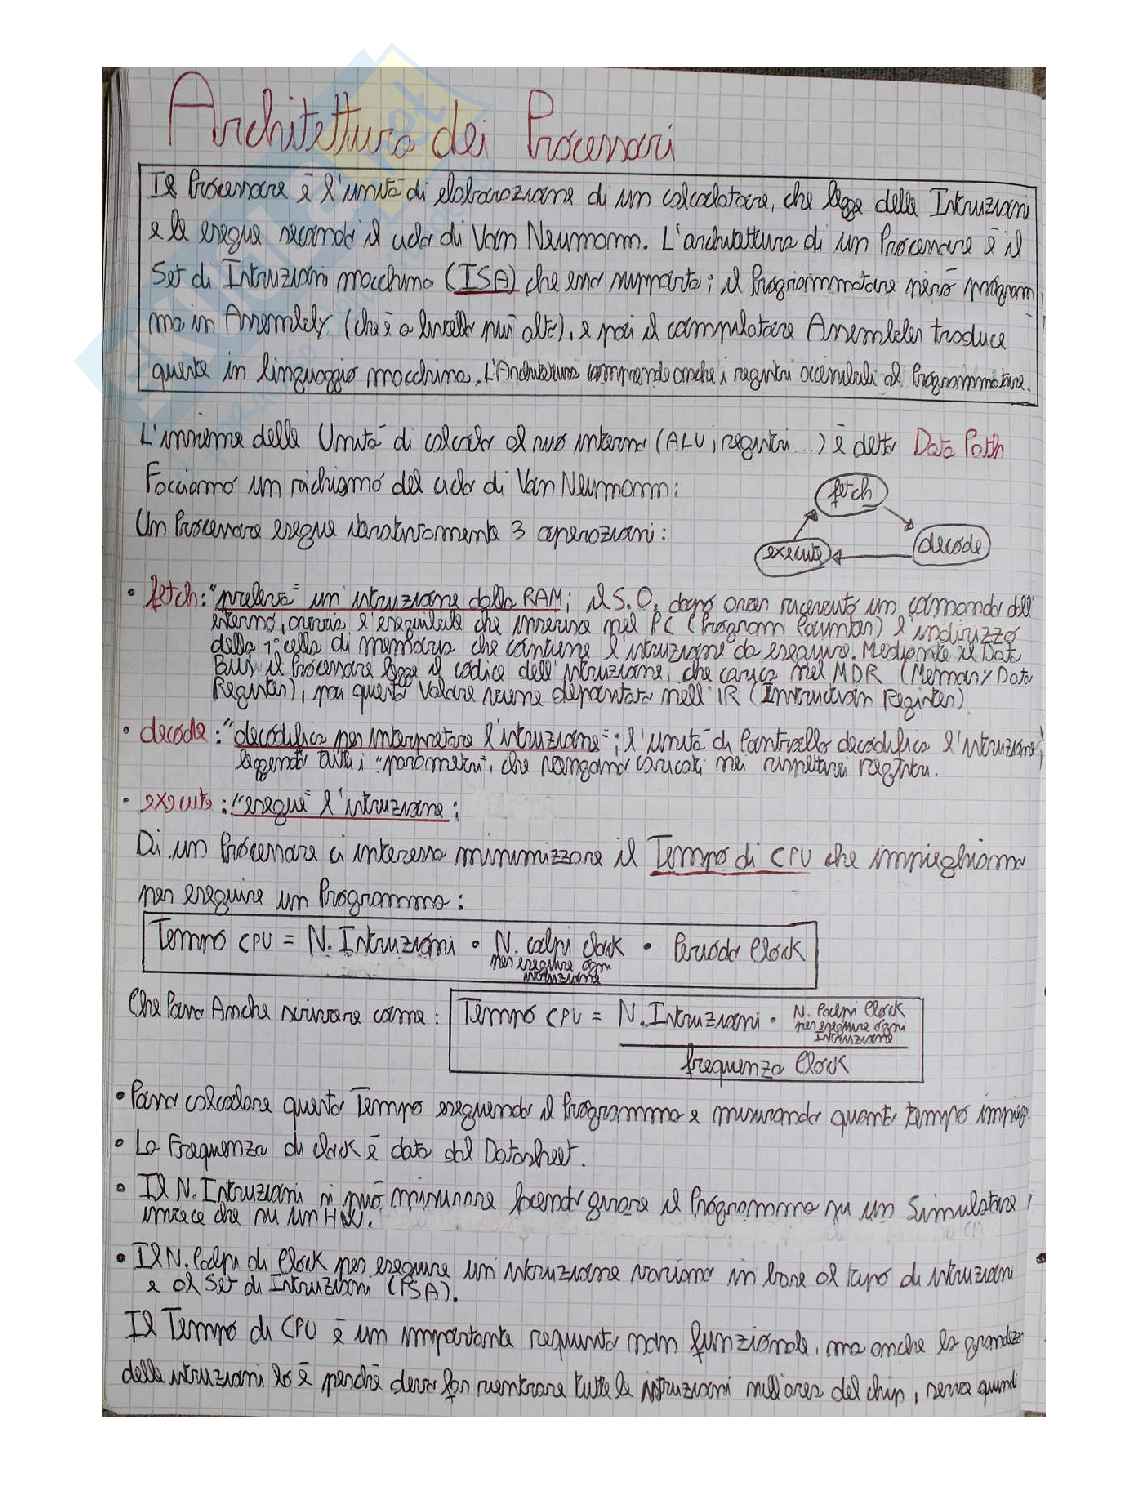 Architettura dei Processori
Il Processore è l'unità di elaborazione di un calcolatore, che legge delle Istruzioni
e le esegue secondo il ciclo di Von Neumann. L'architettura di un Processore è il
Set di Istruzioni macchina (ISA) che esso supporta; il Programmatore però program
ma in Assembly (che è a livello più alto), e poi il compilatore Assembler traduce
queste in linguaggio macchina. L'Architettura comprende anche i registri accessibili al Programmatore.
L'insieme delle Unità di calcolo al suo interno (ALU, registri...) è detto Data Path
Facciamo un richiamo del ciclo di Von Neumann:
Un Processore esegue iterativamente 3 operazioni:
fetch
decode
execute
• fetch: "preleva" un istruzione dalla RAM; il S.O. dopo aver ricevuto un comando dall'
esterno, avvia l'eseguibile che inserisce nel PC (Program Counter) l'indirizzo
della 1ª cella di memoria che contiene l'istruzione da eseguire. Mediante il Dat
Bus il Processore legge il codice dell'istruzione, che carica nel MDR (Memory Data
Register), poi questo valore viene depositato nell'IR (Instruction Register).
• decode: "decodifica per interpretare l'istruzione"; l'unità di Controllo decodifica l'istruzione,
leggendo tutti i "parametri", che vengono caricati nei rispettivi registri.
• execute: "esegue" l'istruzione;
Di un Processore ci interessa minimizzare il Tempo di CPU che impieghiamo
per eseguire un Programma:
Tempo CPU = N. Istruzioni • N. colpi clock per eseguire ogni istruzione • Periodo Clock
Che Posso Anche scrivere come: Tempo CPU = N. Istruzioni • N. Colpi Clock per eseguire ogni Istruzione
frequenza Clock
• Posso calcolare questo Tempo eseguendo il Programma e misurando quanto tempo impieg
• La Frequenza di clock è data dal Datasheet.
• Il N. Istruzioni si può misurare facendo girare il Programma su un Simulatore,
invece che su un HW.
• Il N. Colpi di Clock per eseguire un istruzione variano in base al tipo di istruzioni
e al Set di Istruzioni (ISA).
Il Tempo di CPU è un importante requisito non funzionale, ma anche la grandezza
delle istruzioni lo è perché devo far rientrare tutte le istruzioni nell'area del chip, serve quindi